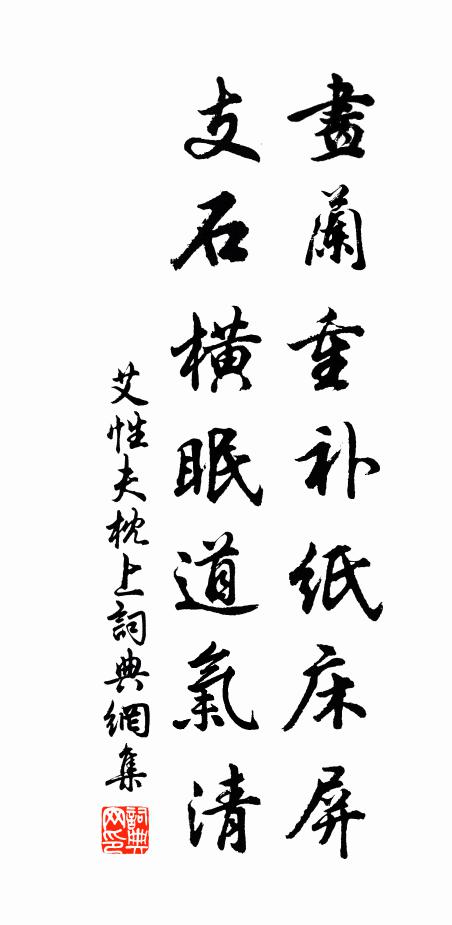 畫蘭重补紙床屏
支石橫眠道氣清
艾性夫枕上詞典網集
詞典网印